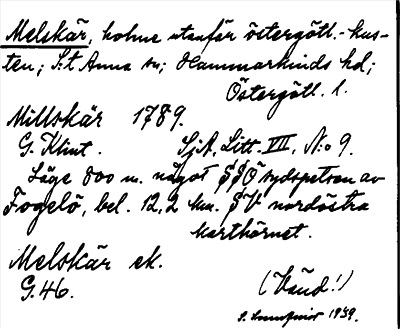 Melskär, holme utanför östergötl.-kus-
ten; S:t Anna sn; Hammarkinds hd;
Östergötl. l.
Millskär 1789.
G. Klint. SjA, Litt. VII, N:o 9.
Läge 800 m. något SSÖ sydspetsen av
Fogelö, bel. 12,2 km. SV nordöstra
karthörnet.
Melskär ek.
G.46.
(Vänd!)
1939.